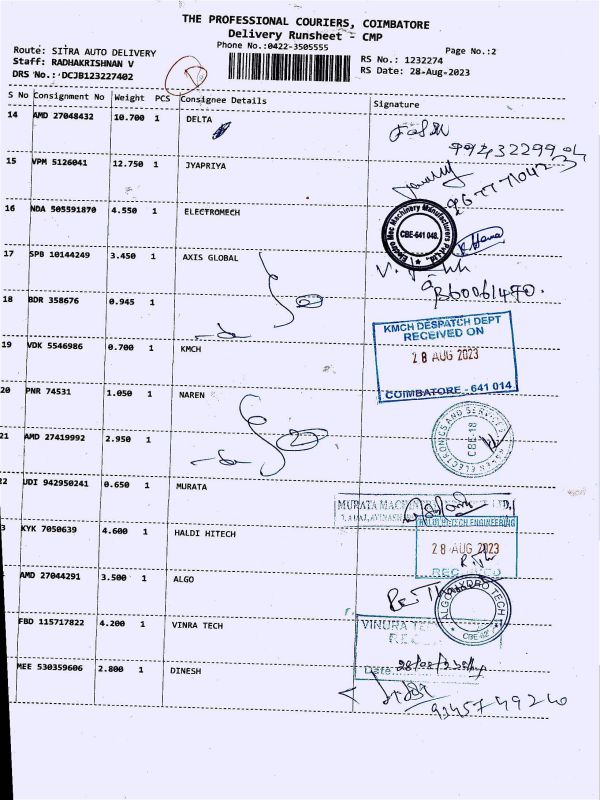 THE PROFESSIONAL COURIERS, COIMBATORE
Delivery Runsheet - CMP
Phone No.:0422-3505555
Page No.:2
Route: SITRA AUTO DELIVERY
Staff: RADHAKRISHNAN V
DRS No.: DCJB123227402
RS No.: 1232274
RS Date: 28-Aug-2023
S No Consignment No Weight PCS Consignee Details Signature
14 AMD 27048432 10.700 1 DELTA
15 VPM 5126041 12.750 1 JYAPRIYA
16 NDA 505591870 4.550 1 ELECTROMECH
Electro Mec Machinery Manufacturers Pvt.Ltd.
CBE-641 048.
17 SPB 10144249 3.450 1 AXIS GLOBAL
18 BDR 358676 0.945 1
9360061470.
19 VDK 5546986 0.700 1 KMCH
KMCH DESPATCH DEPT
RECEIVED ON
28 AUG 2023
COIMBATORE - 641 014
20 PNR 74531 1.050 1 NAREN
21 AMD 27419992 2.950 1
ELECTRONICS AND
CBE-18
22 UDI 942950241 0.650 1 MURATA
MURATA LTD,
3 KYK 7050639 4.600 1 HALDI HITECH
HALDI HITECH ENGINEERING
28 AUG 2023
RECEIVED
AMD 27044291 3.500 1 ALGO
TECH
CBE-62
FBD 115717822 4.200 1 VINRA TECH
VINURA
Date
MEE 530359606 2.800 1 DINESH
9345749240